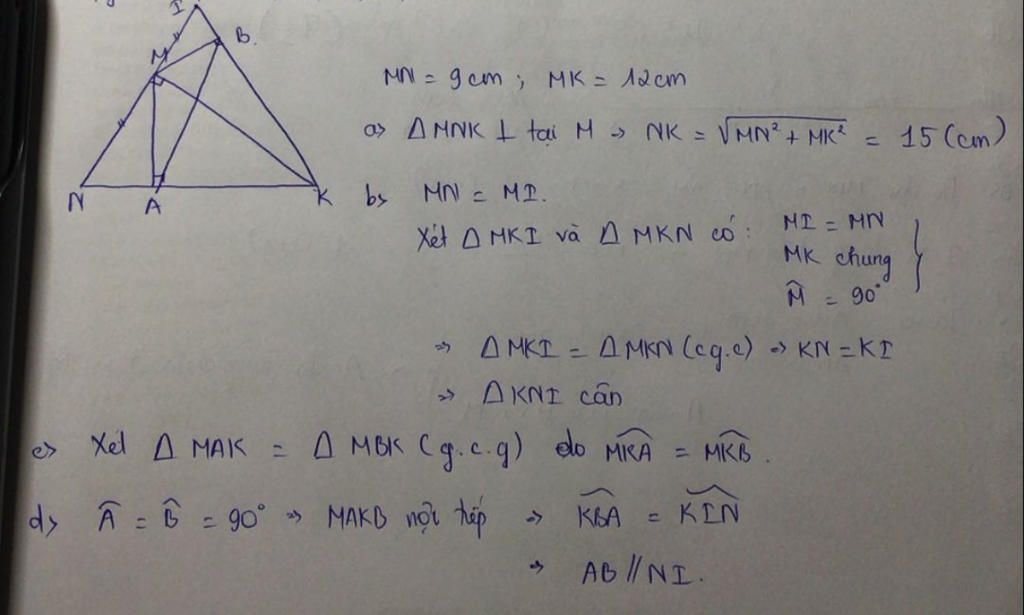 I
B.
M
N
A
K
MN = 9cm ; MK = 12cm
a> Δ MNK ⊥ tại M → NK = √MN² + MK² = 15 (cm)
b> MN = MI.
Xét Δ MKI và Δ MKN có : MI = MN
MK chung
M̂ = 90°
⇒ Δ MKI = Δ MKN (c.g.c) ⇒ KN = KI
⇒ Δ KNI cân
c> Xét Δ MAK = Δ MBK (g.c.g) do MKA = MKB .
d> Â = B̂ = 90° ⇒ MAKB nội tiếp ⇒ KBA = KIN
⇒ AB // NI.